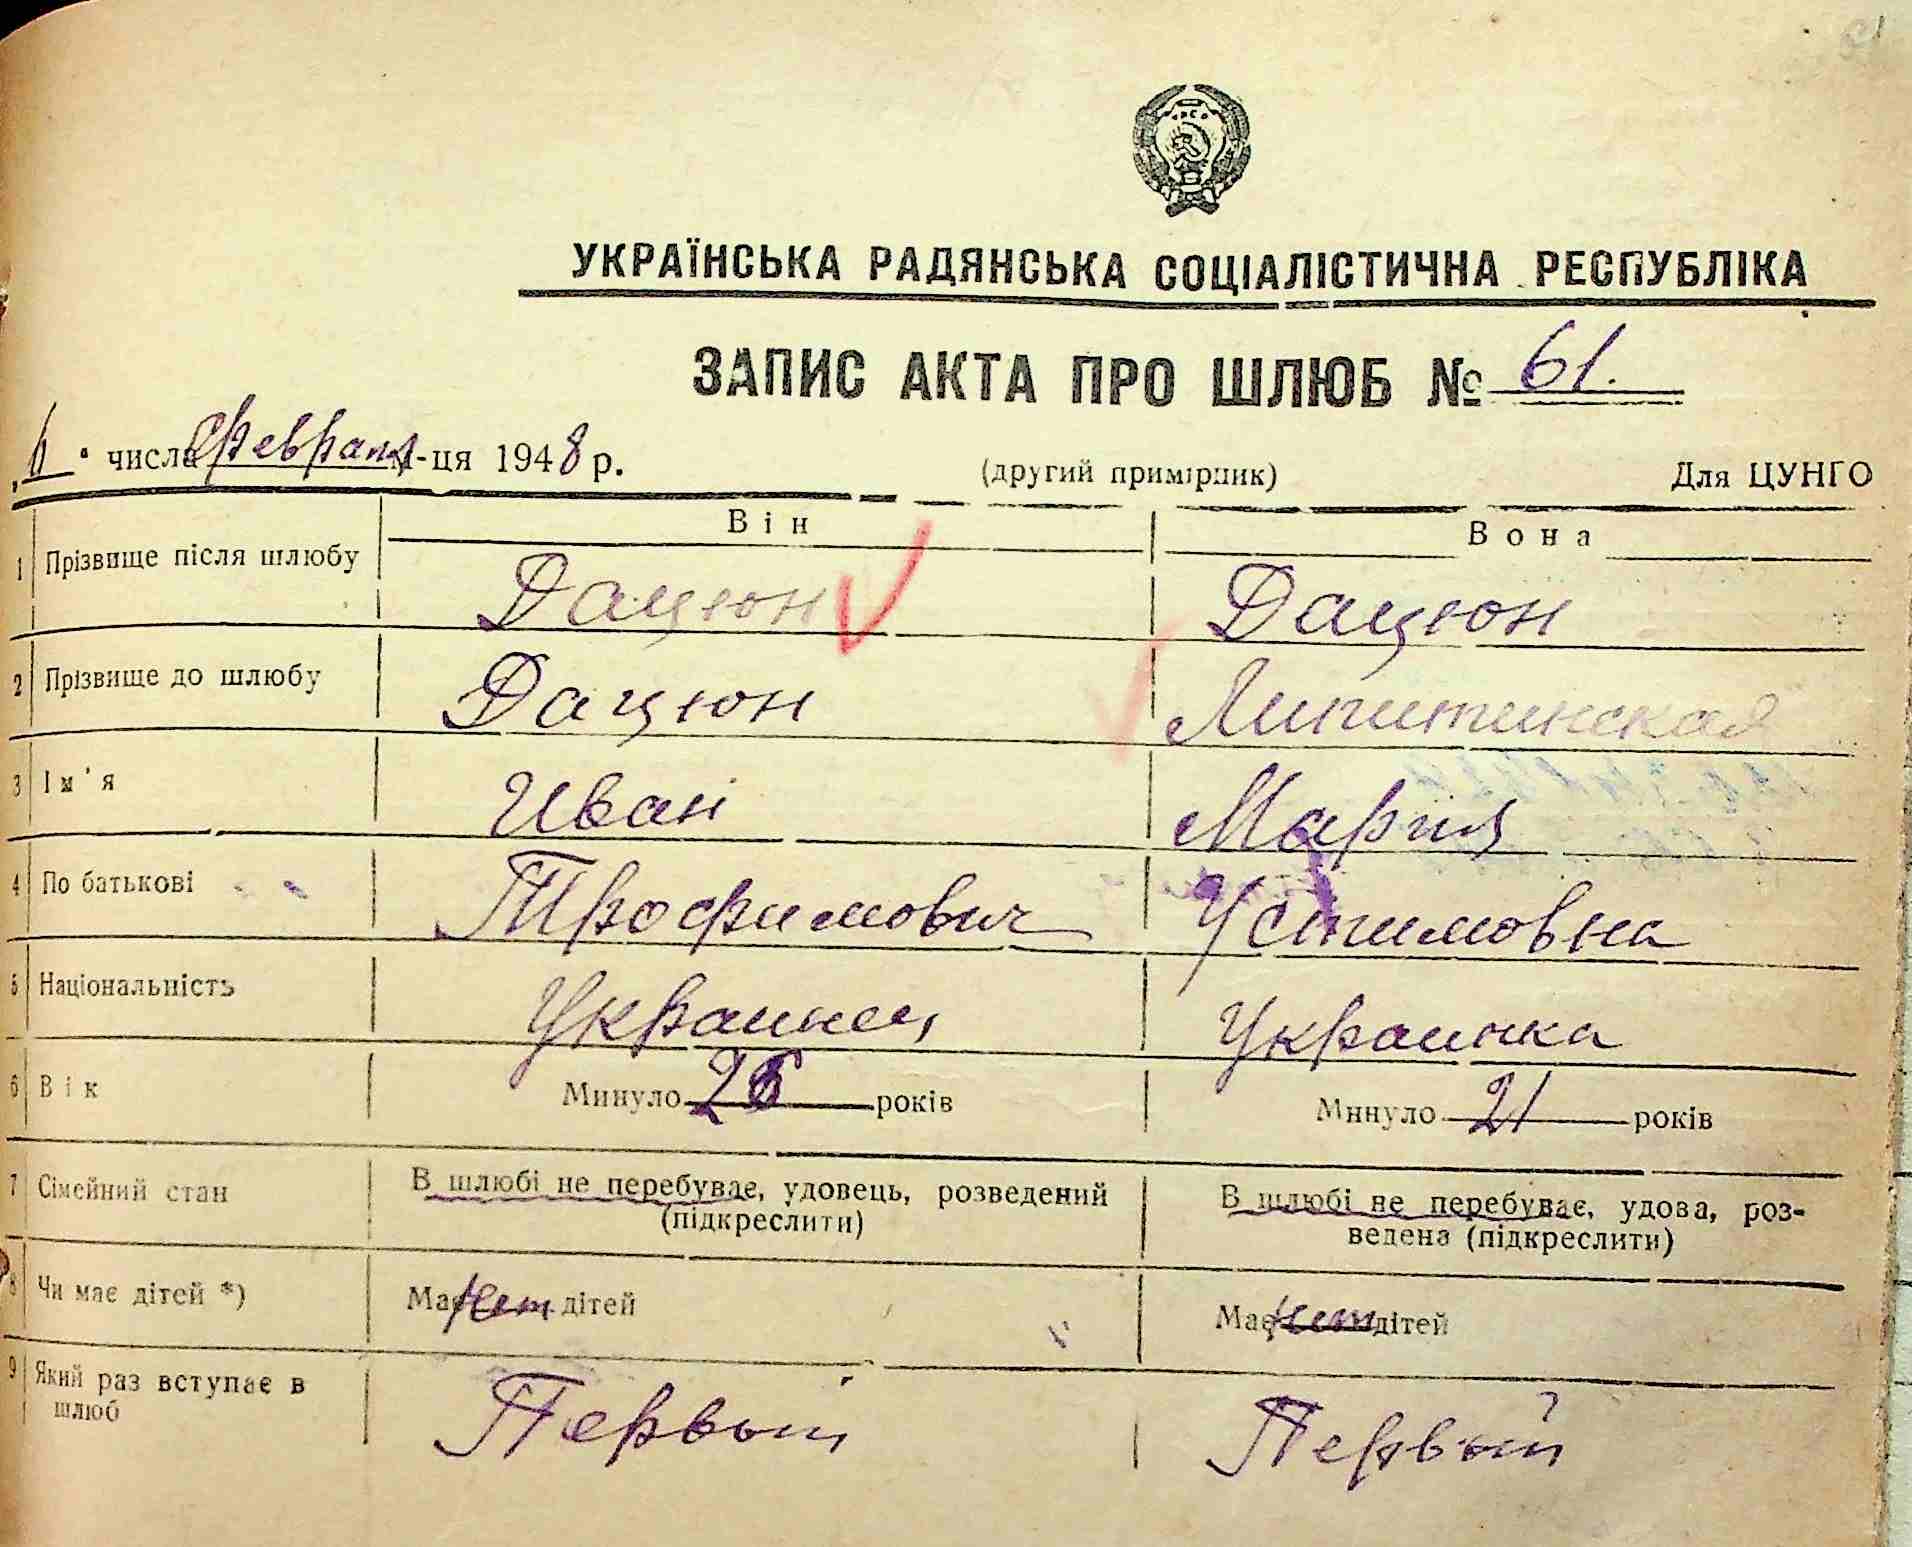 УКРАЇНСЬКА РАДЯНСЬКА СОЦІАЛІСТИЧНА РЕСПУБЛІКА
ЗАПИС АКТА ПРО ШЛЮБ № 61.
числа февраля м-ця 1948 р. (другий примірник) Для ЦУНГО
Він Вона
1 Прізвище після шлюбу Дацюн Дацюн
2 Прізвище до шлюбу Дацюн Липитинская
3 Ім'я Иван Мария
4 По батькові Трофимович Устимовна
5 Національність Украинец Украинка
6 Вік Минуло 26 років Минуло 21 років
7 Сімейний стан В шлюбі не перебуває, удовець, розведений В шлюбі не перебуває, удова, роз-
(підкреслити) ведена (підкреслити)
8 Чи має дітей *) Має нет дітей Має нет дітей
9 Який раз вступає в Первый Первый
шлюб